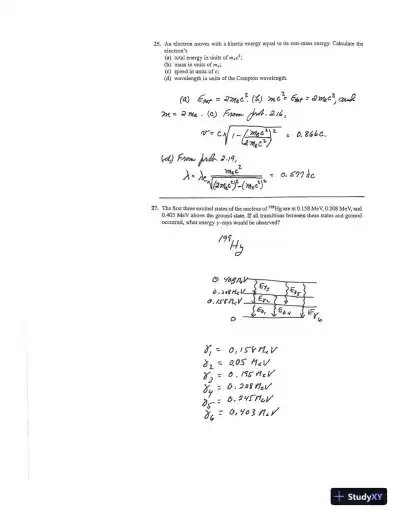 25. An electron moves with a kinetic energy equal to its rest-mass energy. Calculate the
electron's
(a) total energy in units of mₑc²;
(b) mass in units of mₑ;
(c) speed in units of c;
(d) wavelength in units of the Compton wavelength.
(a) E_tot = 2mₑc². (b) mc² = E_tot = 2mₑc², and
m = 2mₑ. (c) From prob. 2.16,
v = c√(1 - (mₑc²)²/(2mₑc²)²) = 0.866c.
(d) From prob. 2.19,
λ = λc mₑc²/√((2mₑc²)² - (mₑc²)²) = 0.577 λc
27. The first three excited states of the nucleus of ¹⁹⁹Hg are at 0.158 MeV, 0.208 MeV, and
0.403 MeV above the ground state. If all transitions between these states and ground
occurred, what energy γ-rays would be observed?
¹⁹⁹Hg
0.403MeV
0.208MeV Eγ3 Eγ5
0.158MeV Eγ2
0 Eγ1 Eγ4 Eγ6
γ1 = 0.158 MeV
γ2 = 0.05 MeV
γ3 = 0.195 MeV
γ4 = 0.208 MeV
γ5 = 0.245 MeV
γ6 = 0.403 MeV
StudyXY